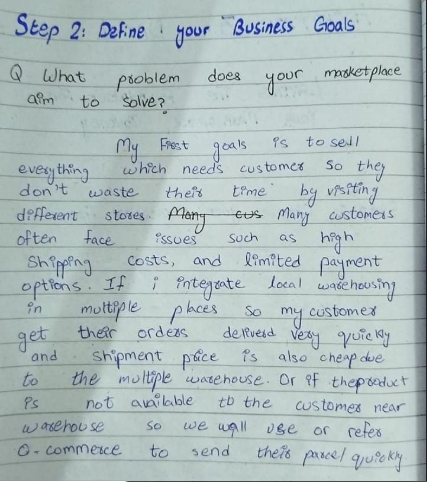 Step 2: Define your Business Goals
Q What problem does your marketplace
aim to solve?
My First goals is to sell
everything which needs customer so they
don't waste their time by visiting
different stores. Many cus Many customers
often face issues such as high
shipping costs, and limited payment
options. If i integrate local warehousing
in multiple places so my customer
get their orders deliverd very quickly
and shipment price is also cheap due
to the multiple warehouse. Or if theproduct
is not available to the customer near
warehouse so we wall use or refer
Q-commerce to send their parcel quickly